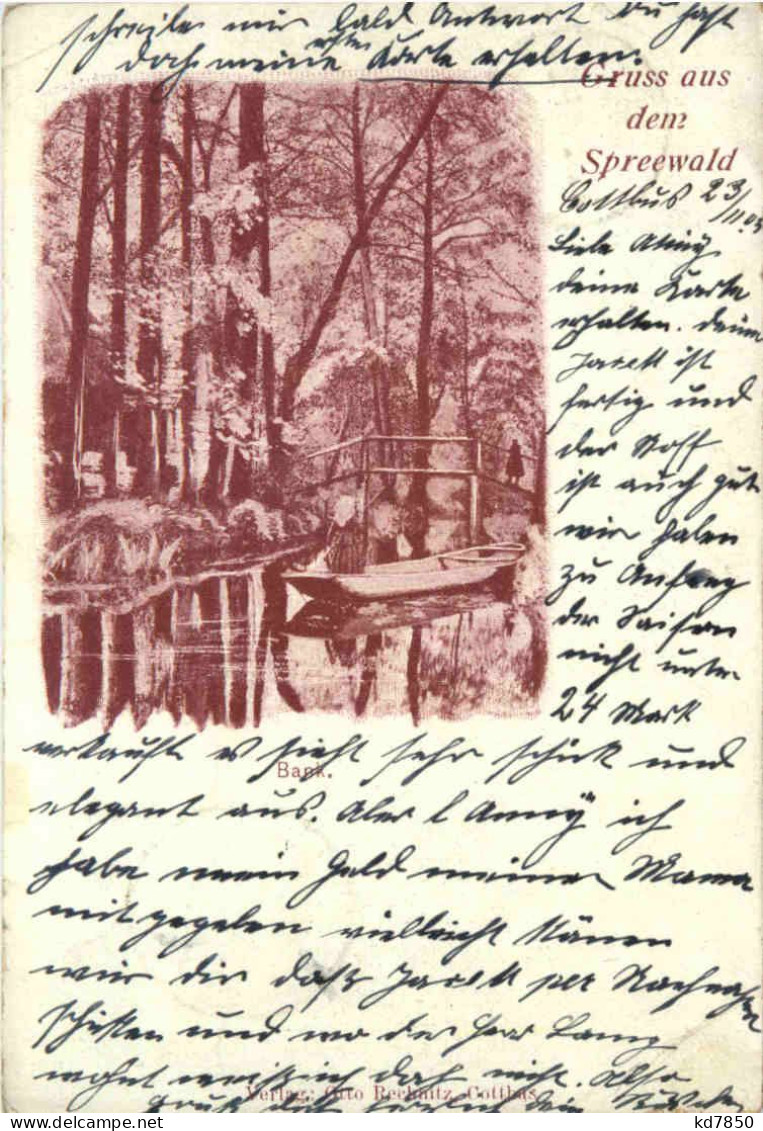 schreibe mir bald Antwort Du hast
doch meine ersten Karte erhalten.
Gruss aus
dem
Spreewald
Cottbus 23/11.03
Liebe Anny
deine Karte
erhalten. deine
Jacett ist
fertig und
der Stoff
ist auch gut
wir haben
zu Anfang
der Saison
nicht unter
24 Mark
verkauft es sieht sehr schick und
elegant aus. Aber l Anny ich
habe mein Geld meiner Mama
mit gegeben vielleicht können
wir dir daß Jacett per Nachnahme
schicken und wo der Herr Lang
wohnt weiß ich doch nicht. Also
Grüß dich herzlich dein
Bank.
Verlag: Otto Rechnitz, Cottbus
kd7850